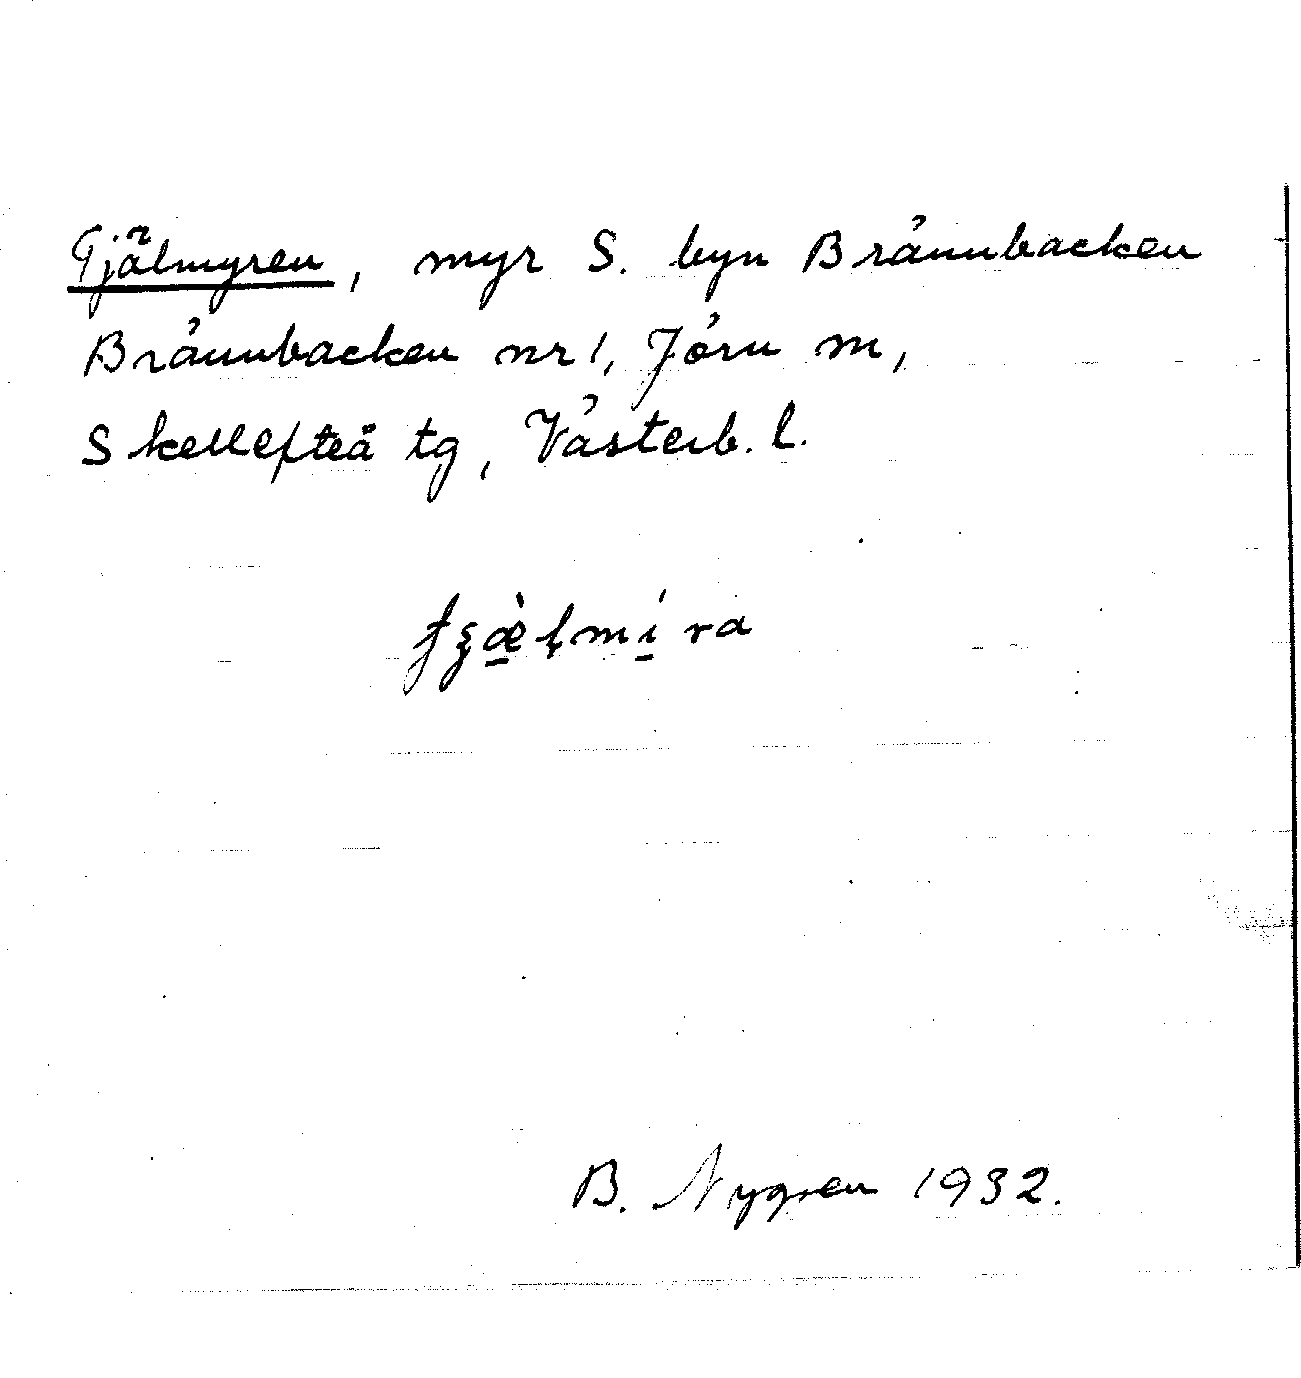 Gjälmyren, myr S. byn Brännbacken
Brännbacken nr 1, Jörn m,
Skellefteå tg, Västerb. l.
B. Nygren 1932.